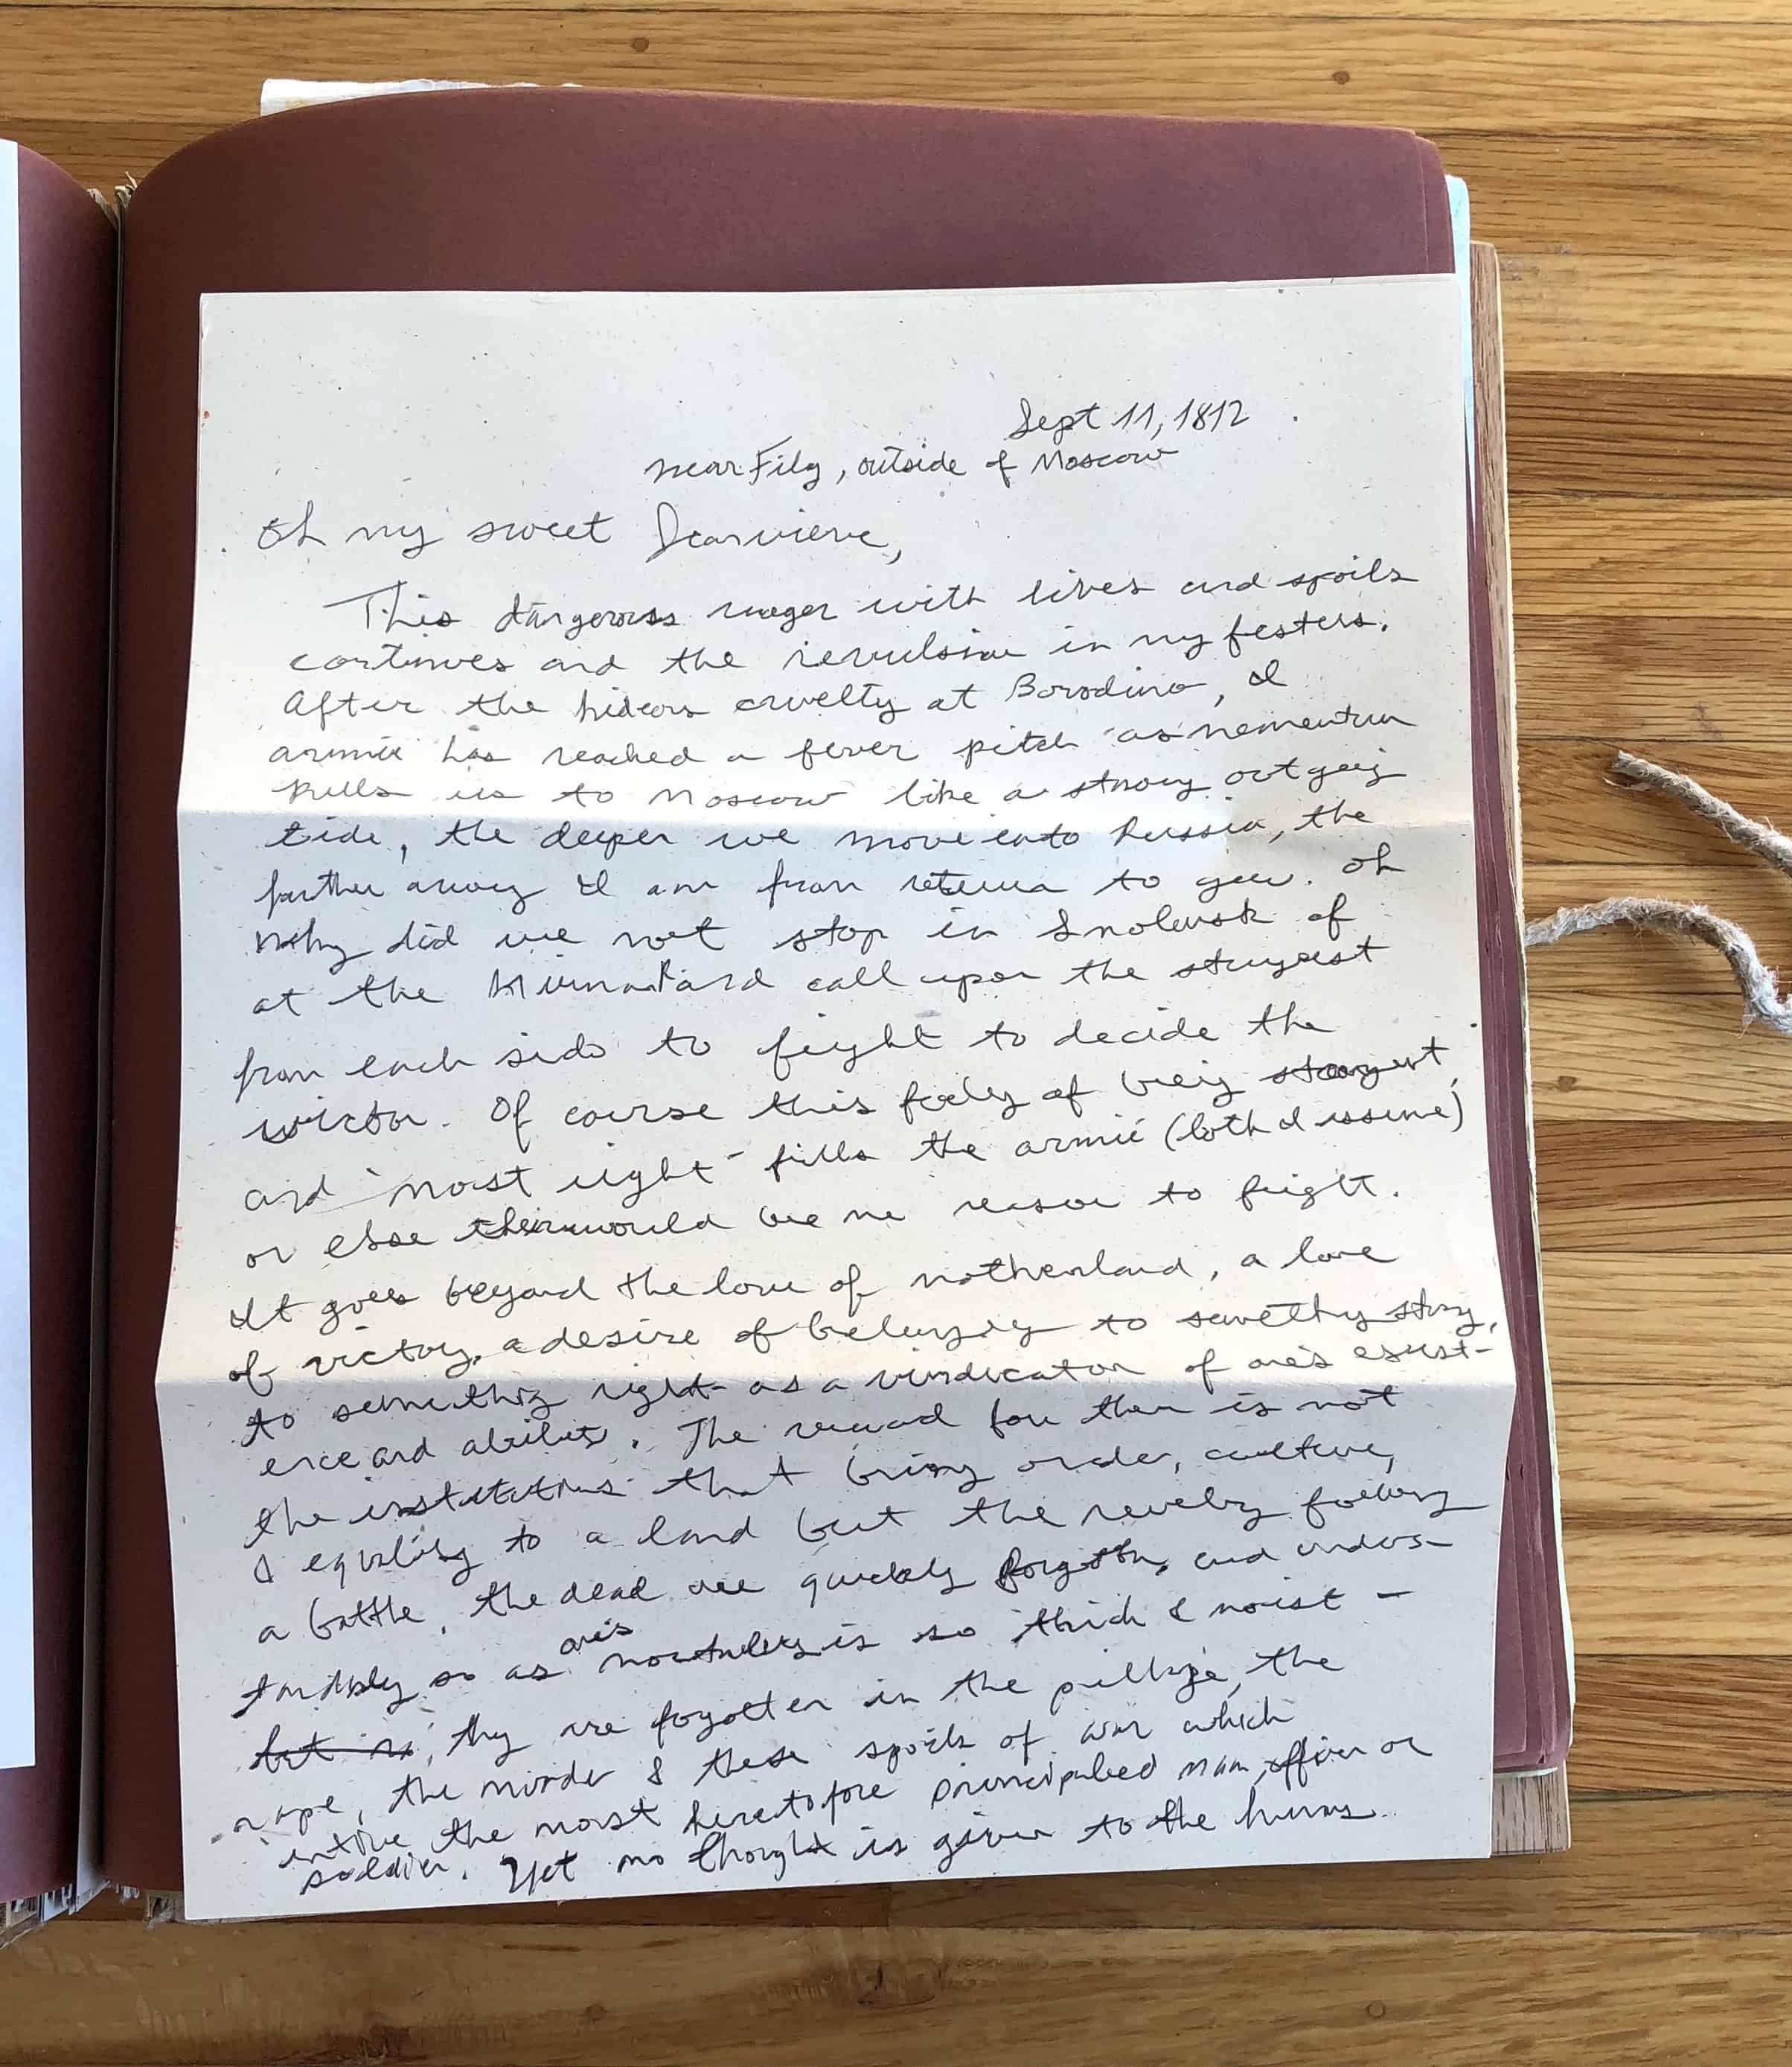 Sept 11, 1812
near Fily, outside of Moscow
Oh my sweet
This dangerous wager with lives and spoils
continues and the revulsion in my festers.
After the hideous cruelty at Borodino, I
armié has reached a fever pitch as momentum
pulls us to Moscow like a strong outgoing
tide, the deeper we move into Russia, the
further away I am from return to you. Oh
why did we not stop in Smolensk of
at the call upon the strongest
from each side to fight to decide the
victor. Of course this feeling of being strongest
and "most right" fills the armié (both I assume)
or else their would be no reason to fight.
It goes beyond the love of motherland, a love
of victory, a desire of belonging to something strong,
to something right as a vindication of one's exist-
ence and ability. The reward for them is not
the institutions that bring order, culture,
& equality to a land but the revelry following
a battle, the dead are quickly forgotten, and unders-
tandably so as one's mortality is so thick & moist -
but is, they are forgotten in the pillage, the
rape, the murder & these spoils of war which
entice the most heretofore principled man, officer or
soldier. Yet no thought is given to the